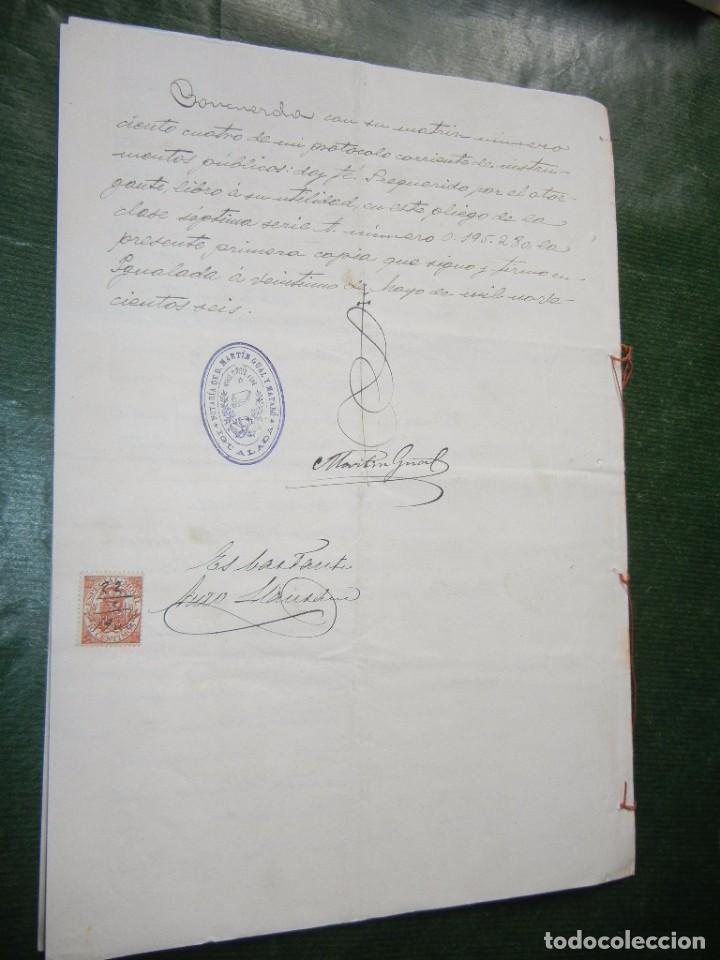 Concuerda con su matriz número
ciento cuatro de mi protocolo corriente de instru-
mentos públicos: doy fé. Y requerido por el otor-
gante, libro á su utilidad, en este pliego de la
clase séptima serie A. número 0.195.280 la
presente primera copia que signo y firmo en
Igualada á veintiuno de Mayo de mil nove-
cientos seis.
NOTARÍA DE D. MARTÍN GUAL Y MATARÓ
IGUALADA
Martin Gual
Es bastante
22
10 CENTIMOS
todocoleccion
todocoleccion.net